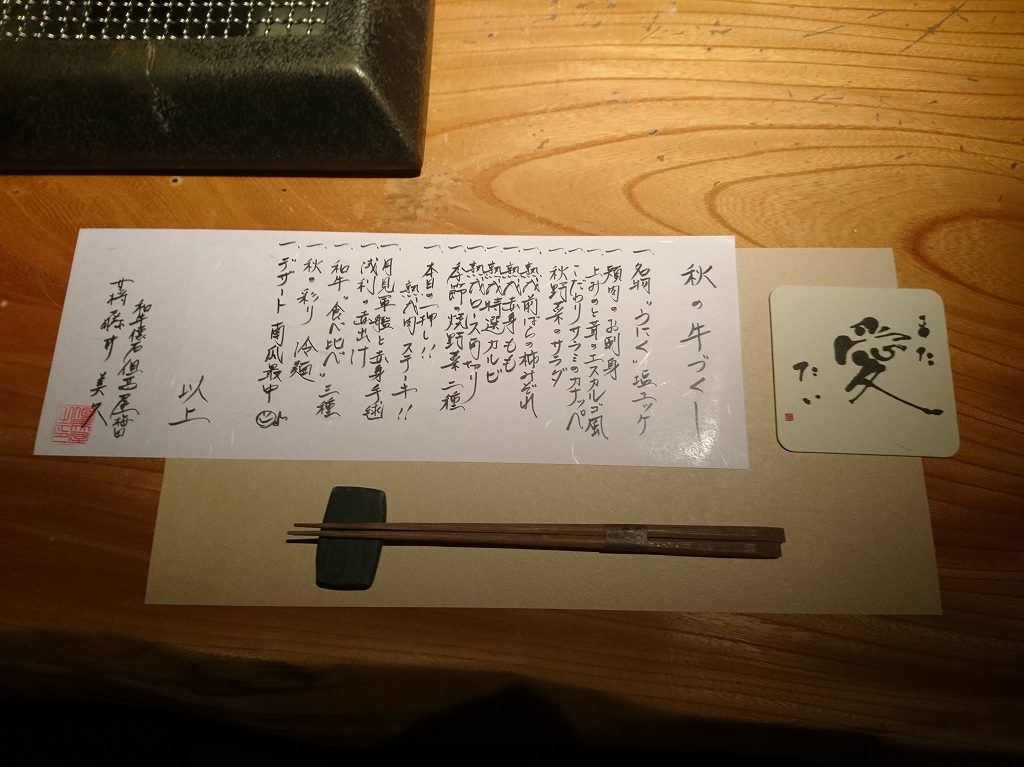 秋の牛づくし
一、名物"うにく"塩ユッケ
一、頬肉のお刺身
一、上みのと茸のエスカルゴ風
一、こだわりサラミのカナッペ
一、秋野菜のサラダ
一、熟成前ばらの柿みぞれ
一、熟成赤身もも
一、熟成特選カルビ
一、熟成ロース角切り
一、季節の焼野菜二種
一、本日の一押し!!
熟成肉ステーキ!!
一、月見軍艦と赤身手毬
一、浅利の赤出汁
一、和牛"食べ比べ"三種
一、秋の彩り 冷麺
一、デザート 南瓜最中
以上
和牛懐石 但馬屋 梅田
女将 藤井 美久
また
愛
たい